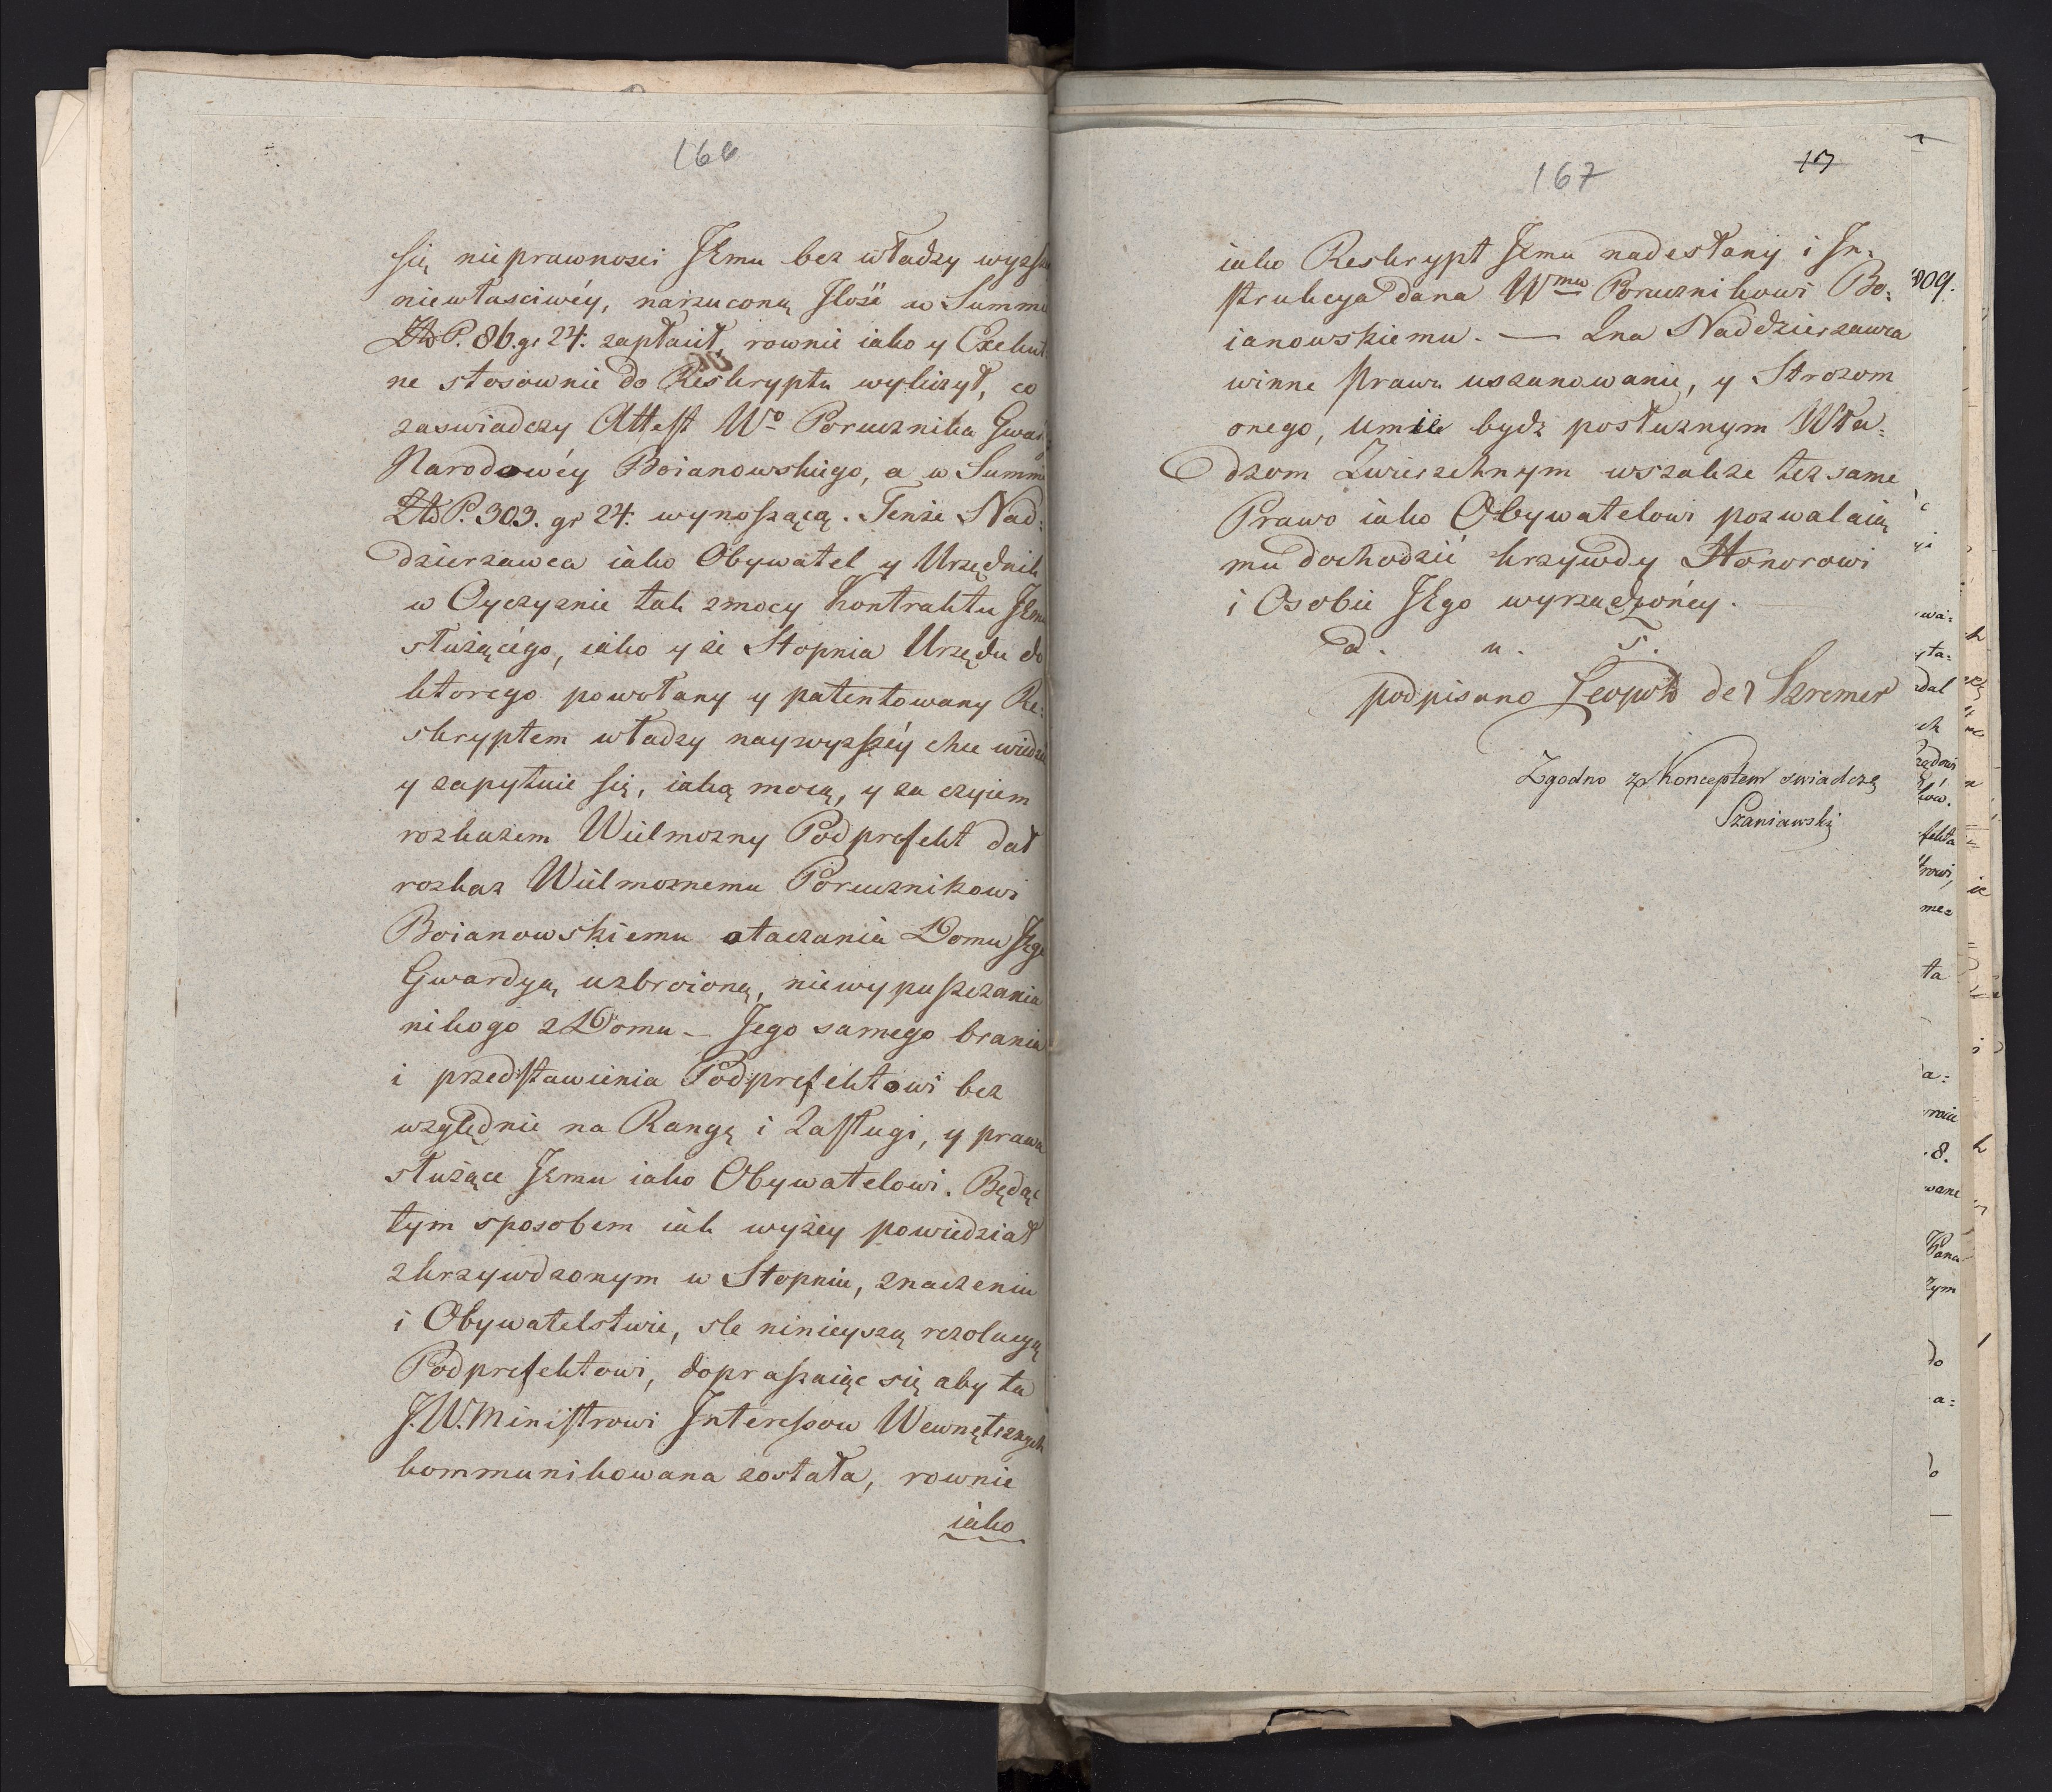 166
się nieprawnosci Jemu bez władzy wyzsz
niewłasciwéy, narzuconą Jlość w Summ
ZłoP. 86. gr 24: zapłacił, rownie iako y Exekut
ne stosownie do Reskryptu wyliczył, co
zaswiadczy Attest Wo Porucznika Gwar
Narodowéy Boianowskiego, a w Summie
ZłoP. 303. gr 24: wynoszącą. Tenże Nad:
dzierzawca iako Obywatel y Urzędnik
w Oyczyznie tak zmocy Kontraktu Jemu
służącégo, iako y ze Stopnia Urzędu do
ktorego powołany y patentowany Re:
skryptem władzy naywyzszéy chce wiedzi
y zapytuie się, iaką mocą, y za czyiem
rozkazem Wielmozny Podprefekt dał
rozkaz Wielmoznemu Porucznikowi
Boianowskiemu otaczania Domu Jego
Gwardyą uzbroioną, niewypuszczania
nikogo z Domu – Jego samego brania
i przedstawienia Podprefektowi bez
względnie na Rangę i Zasługi, y prawa
służące Jemu iako Obywatelowi. Będąc
tym sposobem iak wyżey powiedział
skrzywdzonym w Stopniu, znaczeniu
i Obywatelstwie, sle ninieyszą rezolucyą
Podprefektowi, dopraszaiąc się aby ta
J.W. Ministrowi Interessow Wewnętrznych
kommunikowana została, rownie
iako
167
17
iako Reskrypt Jemu nadesłany i Jn:
strukcya dana Wmu Porucznikowi Bo:
ianowskiemu. — Zna Naddzierzawca
winne prawu uszanowanie, y Strozom
onego, umie bydz posłuznym Wła:
dzom Zwierzchnym wszakze tez same
Prawo iako Obywatelowi pozwalaią
mu dochodzić krzywdy Honorowi
i Osobie Jego wyrządzonéy.
d. u. s.
podpisano Leopold de Szremer
Zgodno z Konceptem swiadczę
Szaniawski
809.